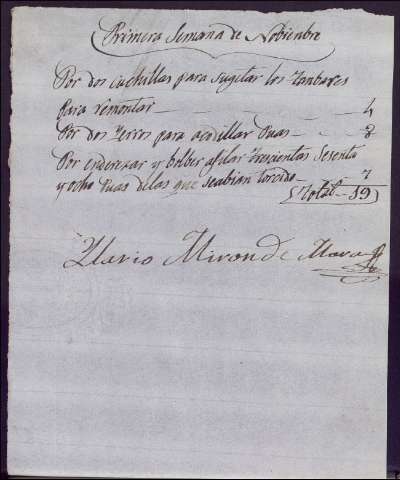 Primera Semana de Nobienbre
Por dos cuchillas para sugetar los
para remontar 4
Por dos Yerros para acodillar Puas 8
Por enderezar y bolber afilar trescientas sesenta
y ocho Puas delas que seabian torcido 7
Total 19
Ylario Miron de Mora